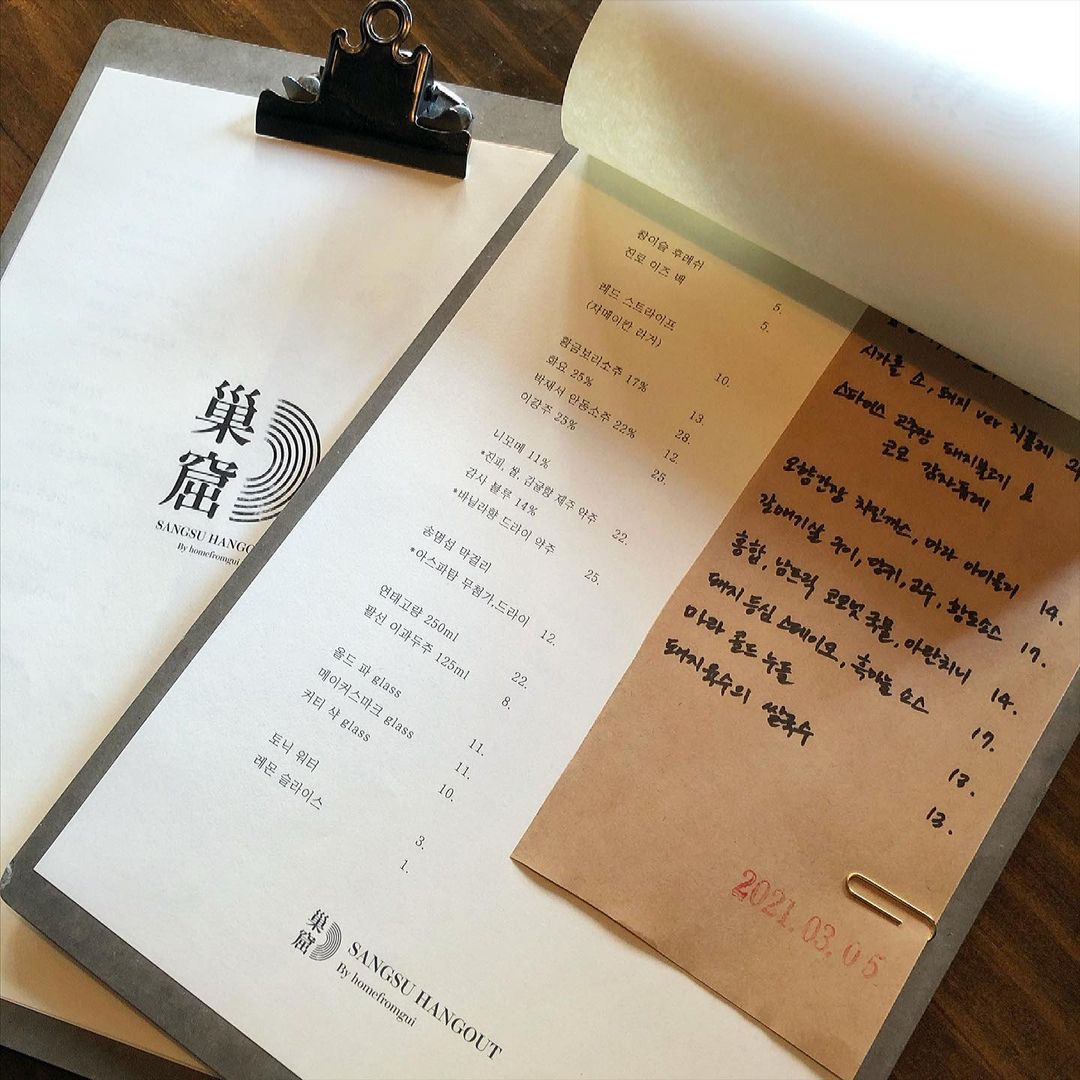 巢
窟
SANGSU HANGO
By homefromgui
참이슬 후레쉬 5.
진로 이즈 백 5.
레드 스트라이프 10.
(자메이칸 라거)
황금보리소주 17% 13.
화요 25% 28.
박재서 안동소주 22% 12.
이강주 25% 25.
니모메 11% 22.
*진피, 쌀, 감귤향 제주 약주
감사 블루 14% 25.
*바닐라향 드라이 약주
송명섭 막걸리 12.
*아스파탐 무첨가, 드라이
연태고량 250ml 22.
팔선 이과두주 125ml 8.
올드 파 glass 11.
메이커스마크 glass 11.
커티 삭 glass 10.
토닉 워터 3.
레몬 슬라이스 1.
巢
窟
SANGSU HANGOUT
By homefromgui
시가롤 소, 돼지 ver
고추장 돼지불고기 &
감자퓨레
오향간장 치킨까스, 마라 아이올리 14.
갈매기살 구이, 명퀴, 고수, 황도소스 17.
홍합, 남드릭 코코넛 국물, 아란치니 14.
돼지 등심 스테이크, 흑마늘 소스 17.
마라 콜드 누들 13.
돼지육수의 쌀국수 13.
2021.03.05